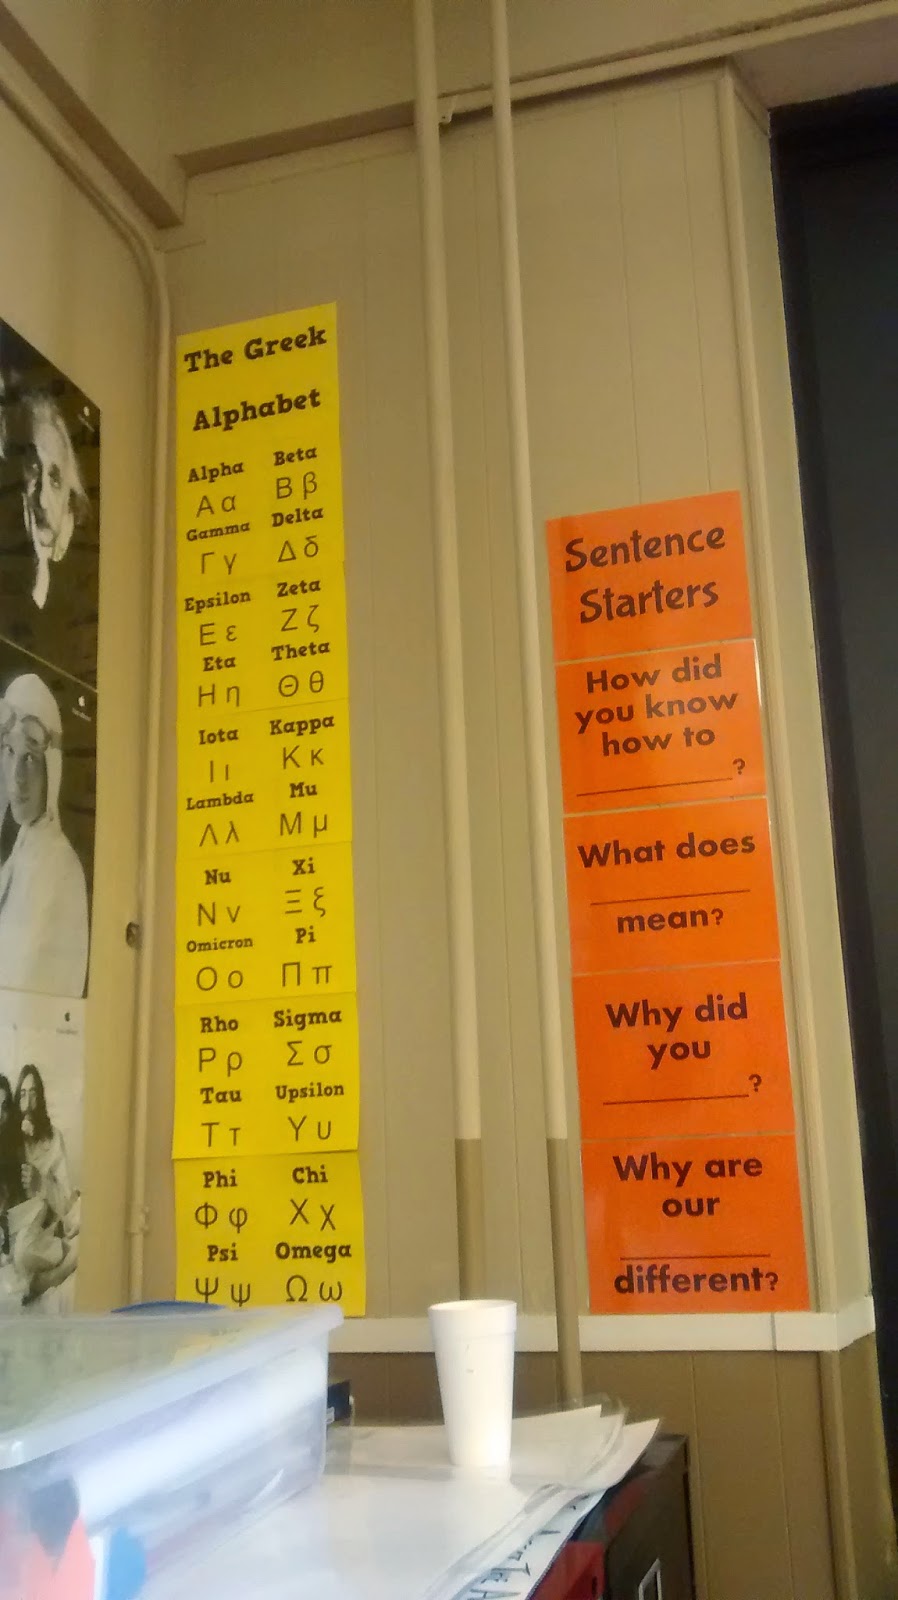 The Greek
Alphabet
Alpha Beta
Α α Β β
Gamma Delta
Γ γ Δ δ
Epsilon Zeta
Ε ε Ζ ζ
Eta Theta
Η η Θ θ
Iota Kappa
Ι ι Κ κ
Lambda Mu
Λ λ Μ μ
Nu Xi
Ν ν Ξ ξ
Omicron Pi
Ο ο Π π
Rho Sigma
Ρ ρ Σ σ
Tau Upsilon
Τ τ Υ υ
Phi Chi
Φ φ Χ χ
Psi Omega
Ψ ψ Ω ω
Sentence
Starters
How did
you know
how to
__________?
What does
__________
mean?
Why did
you
__________?
Why are
our
__________
different?